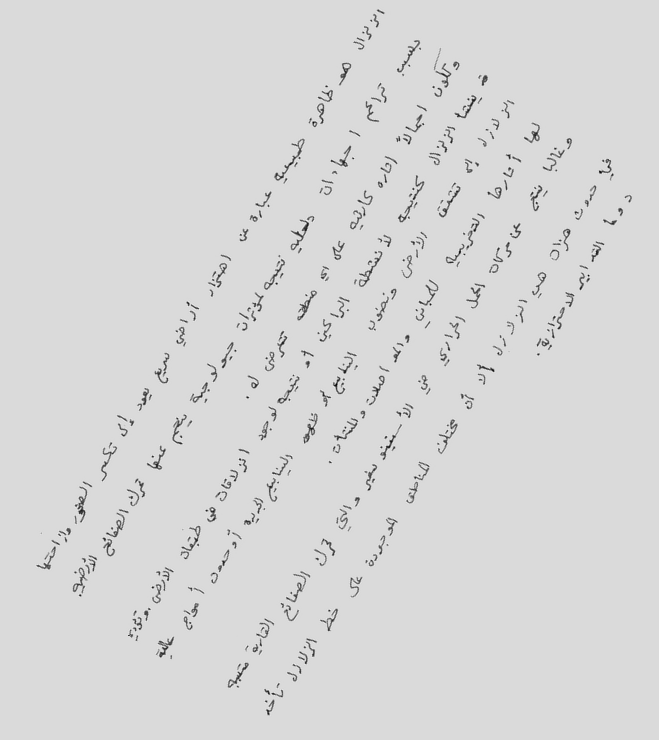 الزلزال هو ظاهرة طبيعية عبارة عن اهتزاز أراضي سريع يعود إلى تكسر الصخور وإزاحتها
بسبب تراكم اجهادات داخلية نتيجة لمؤثرات جيولوجية ينجم عنها تحرك الصفائح الأرضية.
وتكون اجمالاً اثاره كارثية على أي منطقة تتعرض له.
قد ينشأ الزلزال كنتيجة لأنشطة البراكين أو نتيجة لوجود انزلاقات في طبقات الأرض. وتؤدي
الزلازل إلى تشقق الأرض ونضوب الينابيع أو ظهور الينابيع الجديدة أو حدوث أمواج عالية
لها أثارها التخريبية للمباني والمواصلات والمنشآت.
وغالبا ينتج عن حركات الحمل الحراري في الأسثينوسفير والتي تحرك الصفائح القارية متسببة
في حدوث هزات هي الزلازل ألا أن مختلف المناطق الموجودة على خط الزلازل تأخذ
دوما التدابير الاحترازية.